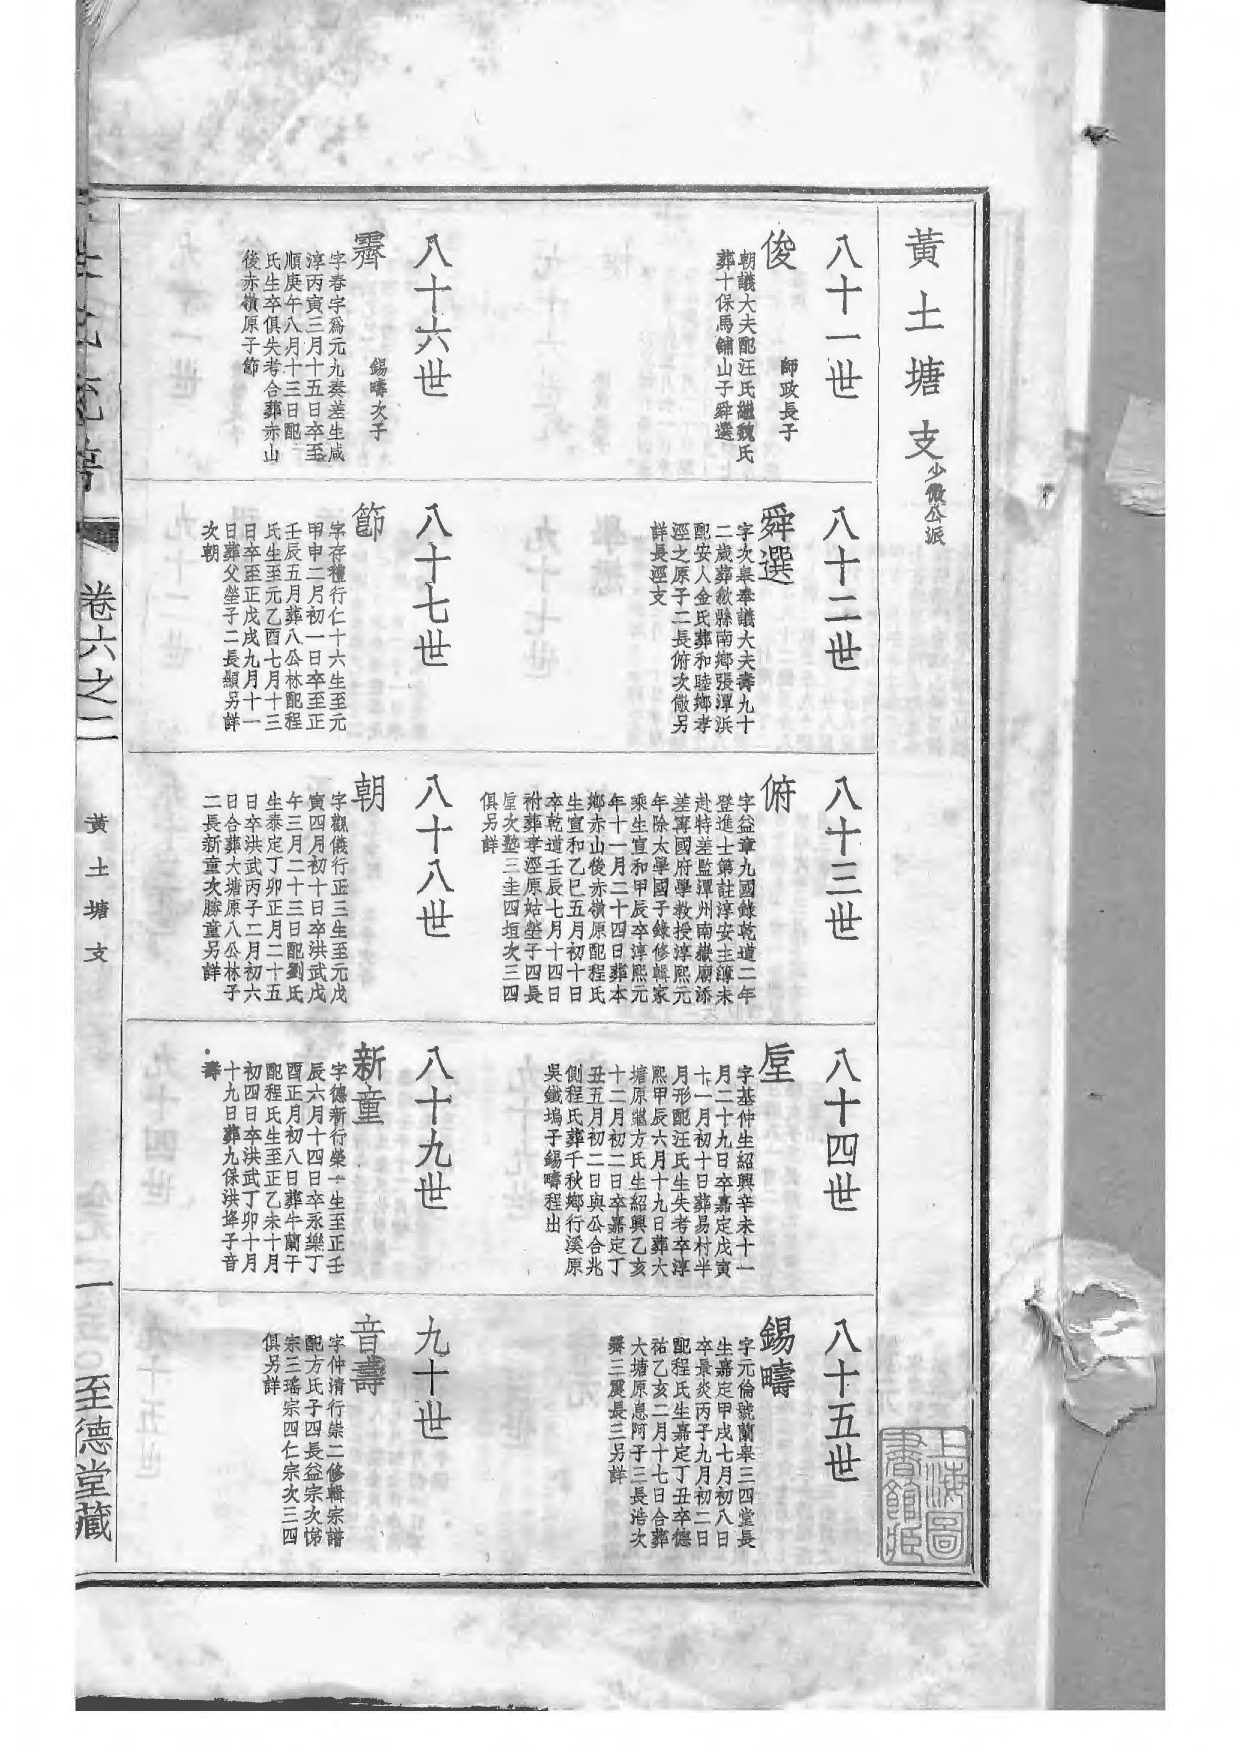 黃土塘支
少微公派
八十一世
俊
師政長子
朝議大夫配汪氏繼魏氏
葬十保馬鋪山子舜選
八十二世
舜選
字次皋奉議大夫壽九十
二歲葬歙縣南鄉張潭浜
配安人金氏葬和睦鄉孝
涇之原子二長俯次儆另
詳長涇支
八十三世
俯
字益章九國錄乾道二年
登進士第註淳安主簿未
赴特差監潭州南嶽廟添
差寧國府學教授淳熙元
年除太學國子錄修輯家
乘生宣和甲辰卒淳熙元
年十一月二十四日葬本
鄉赤山後赤嶺原配程氏
生宣和乙巳五月初十日
卒乾道壬辰七月十四日
祔葬孝涇原姑塋子四長
垕次塾三圭四垣次三四
俱另詳
八十四世
垕
字基仲生紹興辛未十一
月二十九日卒嘉定戊寅
十一月初十日葬易村半
月形配汪氏生失考卒淳
熙甲辰六月十九日葬大
塘原繼方氏生紹興乙亥
十二月初二日卒嘉定丁
丑五月初二日與公合兆
側程氏葬千秋鄉行溪原
吳鐵塢子錫疇程出
八十五世
錫疇
字元倫號蘭皋三四堂長
生嘉定甲戌七月初八日
卒景炎丙子九月初二日
配程氏生嘉定丁丑卒德
祐乙亥二月十七日合葬
大塘原息阿子三長浩次
霽三震長三另詳
八十六世
霽
錫疇次子
字春字為元九奏差生咸
淳丙寅三月十五日卒至
順庚午八月十三日配
氏生卒俱失考合葬赤山
後赤嶺原子節
八十七世
節
字存禮行仁十六生至元
甲申二月初一日卒至正
壬辰五月葬八公林配程
氏生至元乙酉七月十三
日卒至正戊戌九月十一
日葬父塋子二長顯另詳
次朝
八十八世
朝
字觀儀行正三生至元戊
寅四月初十日卒洪武戊
午三月二十三日配劉氏
生泰定丁卯正月二十五
日卒洪武丙子二月初六
日合葬大塘原八公林子
二長新童次勝童另詳
八十九世
新童
字德新行榮一生至正壬
辰六月十四日卒永樂丁
酉正月初八日葬牛蘭干
配程氏生至正乙未十月
初四日卒洪武丁卯十月
十九日葬九保洪垾子音
壽
九十世
音壽
字仲清行崇二修輯宗譜
配方氏子四長益宗次悌
宗三瑤宗四仁宗次三四
俱另詳
卷六之二
黃土塘支
一
至德堂藏
上海圖
書館藏